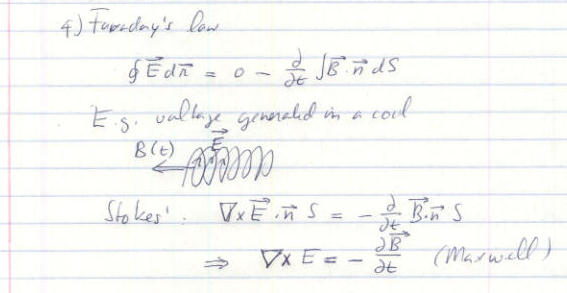 4) Faraday's law
∮E⃗ dr⃗ = 0 - ∂/∂t ∫B⃗·n⃗ dS
E.g. voltage generated in a coil
B(t) E⃗
Stokes': ∇×E⃗·n⃗ S = - ∂/∂t B⃗·n⃗ S
⇒ ∇×E = - ∂B⃗/∂t (Maxwell)